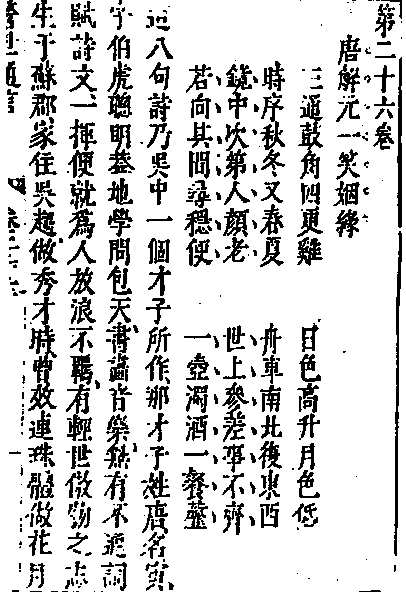 第二十六卷
唐解元一笑姻緣
三通鼓角四更雞　日色高升月色低
時序秋冬又春夏　舟車南北復東西
鏡中次第人顏老　世上參差事不齊
若向其間尋穩便　一壺濁酒一餐虀
這八句詩乃吳中一個才子所作那才子姓唐名寅
字伯虎聰明蓋地學問包天書畫音樂無有不通詞
賦詩文一揮便就爲人放浪不羈有輕世傲物之志
生于蘇郡家住吳趨做秀才時曹效連珠體做花月
警世通言　卷二十六